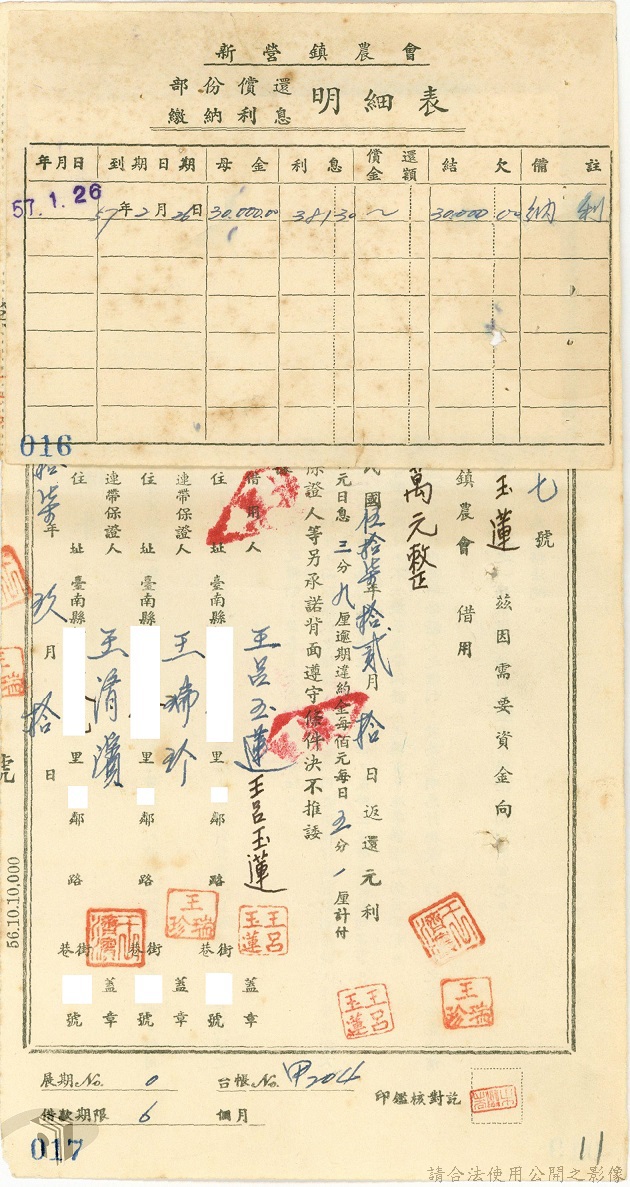 新營鎮農會
部份償還
繳納利息 明細表
年月日 到期日期 母金 利息 償還金額 結欠 備註
57.1.26 57年2月26日 30,000.00 381.30 〜 30,000.00 納利
016
七號
玉蓮 茲因需要資金向
鎮農會 借用
萬元整
民國伍拾柒年拾貳月拾日返還元利
元日息三分九厘逾期違約金每佰元每日五分1厘計付
保證人等另承諾背面遵守條件決不推諉
借用人 王呂玉蓮 王呂玉蓮 蓋章
住址 臺南縣 里 鄰 路 街巷 號
連帶保證人 王瑞珍 蓋章
住址 臺南縣 里 鄰 路 街巷 號
連帶保證人 王清濱 蓋章
住址 臺南縣 里 鄰 路 街巷 號
拾柒年玖月拾日
王瑞珍
王呂玉蓮
王瑞珍
王呂玉蓮
王瑞
號
56.10.10,000
展期No. 0 台帳No. 甲204
印鑑核對訖
借款期限 6 個月
017
11
請合法使用公開之影像